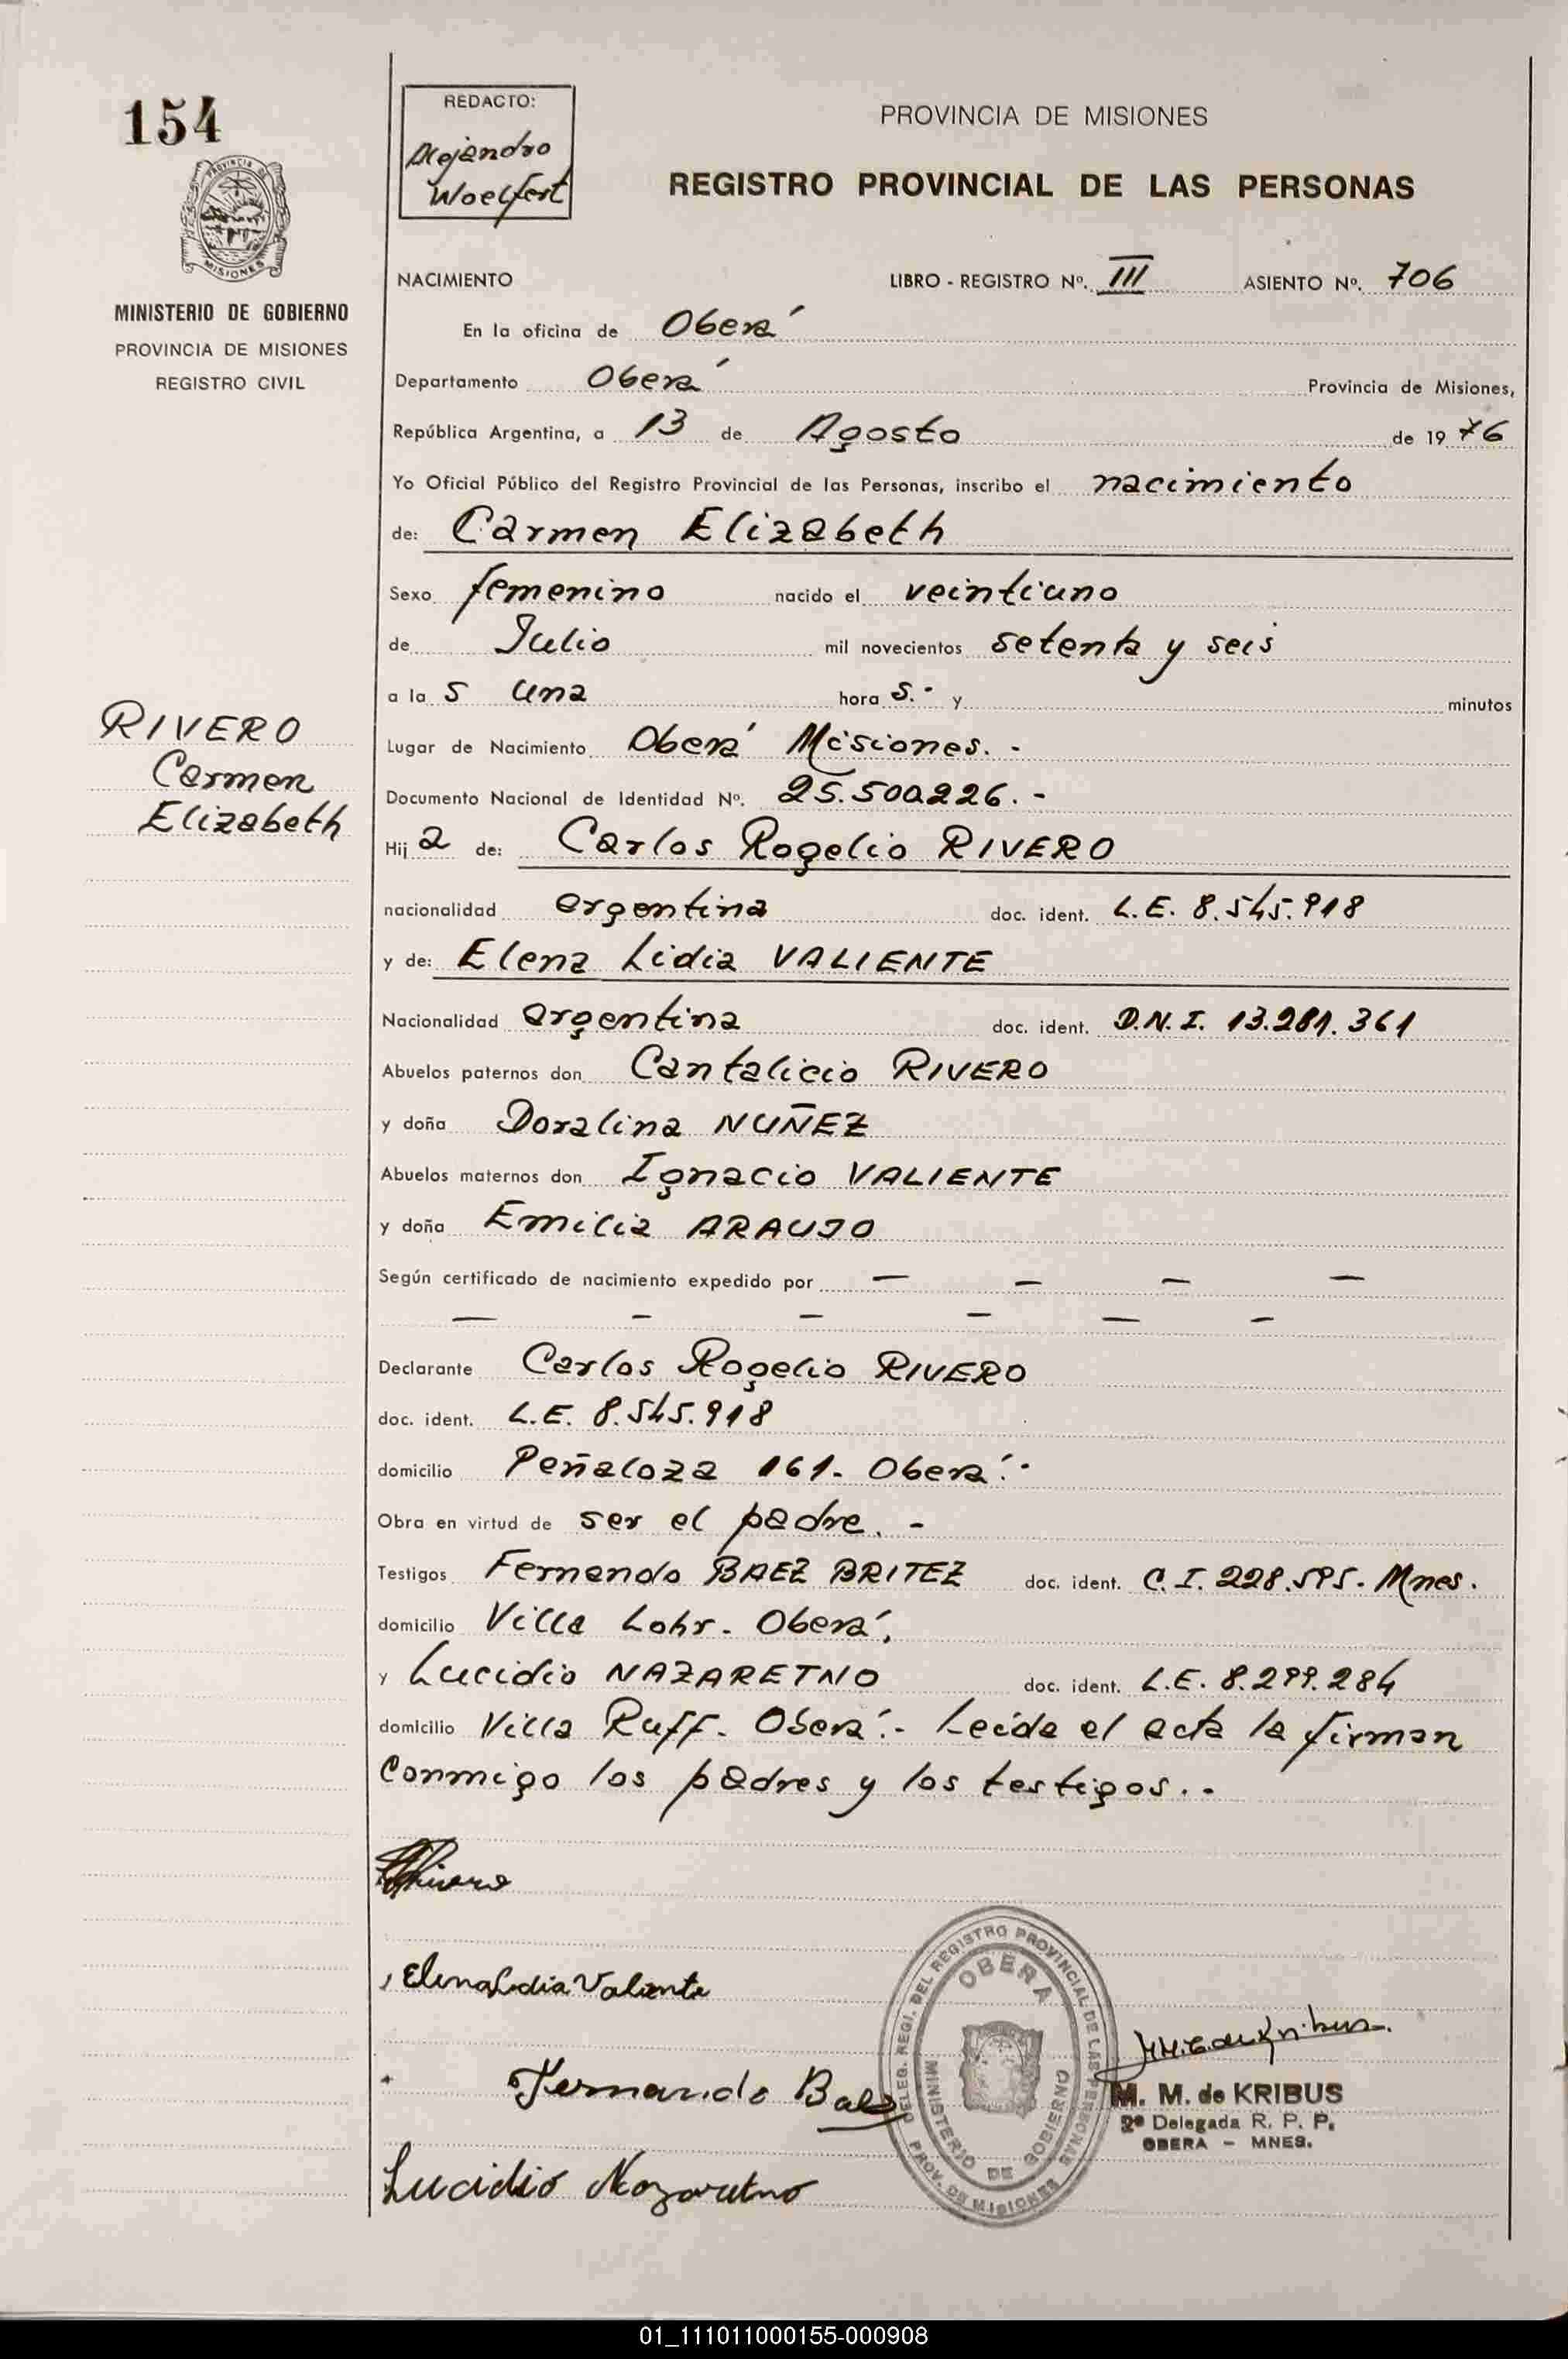 154
PROVINCIA DE
MISIONES
MINISTERIO DE GOBIERNO
PROVINCIA DE MISIONES
REGISTRO CIVIL
RIVERO
Carmen
Elizabeth
REDACTO:
Alejandro
Woelfert
PROVINCIA DE MISIONES
REGISTRO PROVINCIAL DE LAS PERSONAS
NACIMIENTO LIBRO - REGISTRO Nº. III ASIENTO Nº. 706
En la oficina de Oberá
Departamento Oberá Provincia de Misiones,
República Argentina, a 13 de Agosto de 1976
Yo Oficial Público del Registro Provincial de las Personas, inscribo el nacimiento
de: Carmen Elizabeth
Sexo femenino nacido el veintiuno
de Julio mil novecientos setenta y seis
a la s una hora s.- y minutos
Lugar de Nacimiento Oberá Misiones. -
Documento Nacional de Identidad Nº. 25.500.226. -
Hij a de: Carlos Rogelio RIVERO
nacionalidad argentina doc. ident. L.E. 8.545.918
y de: Elena Lidia VALIENTE
Nacionalidad argentina doc. ident. D.N.I. 13.281.361
Abuelos paternos don Cantalicio RIVERO
y doña Doralina NUÑEZ
Abuelos maternos don Ignacio VALIENTE
y doña Emilia ARAUJO
Según certificado de nacimiento expedido por — — — —
— — — — — —
Declarante Carlos Rogelio RIVERO
doc. ident. L.E. 8.545.918
domicilio Peñaloza 161. Oberá.-
Obra en virtud de ser el padre. -
Testigos Fernando BAEZ BRITEZ doc. ident. C.I. 228.595. Mnes.
domicilio Villa Lohr. Oberá,
y Lucidio NAZARETNO doc. ident. L.E. 8.299.284
domicilio Villa Ruff. Oberá.- Leída el acta la firman
conmigo los padres y los testigos. -
Elena Lidia Valiente
Fernando Baez
Lucidio Nazaretno
DELEG. REGI. DEL REGISTRO PROVINCIAL DE LAS PERSONAS
OBERA
MINISTERIO DE GOBIERNO
PROV. DE MISIONES
M. M. de Kribus
M. M. de KRIBUS
2ª Delegada R. P. P.
OBERA - MNES.
01_111011000155-000908